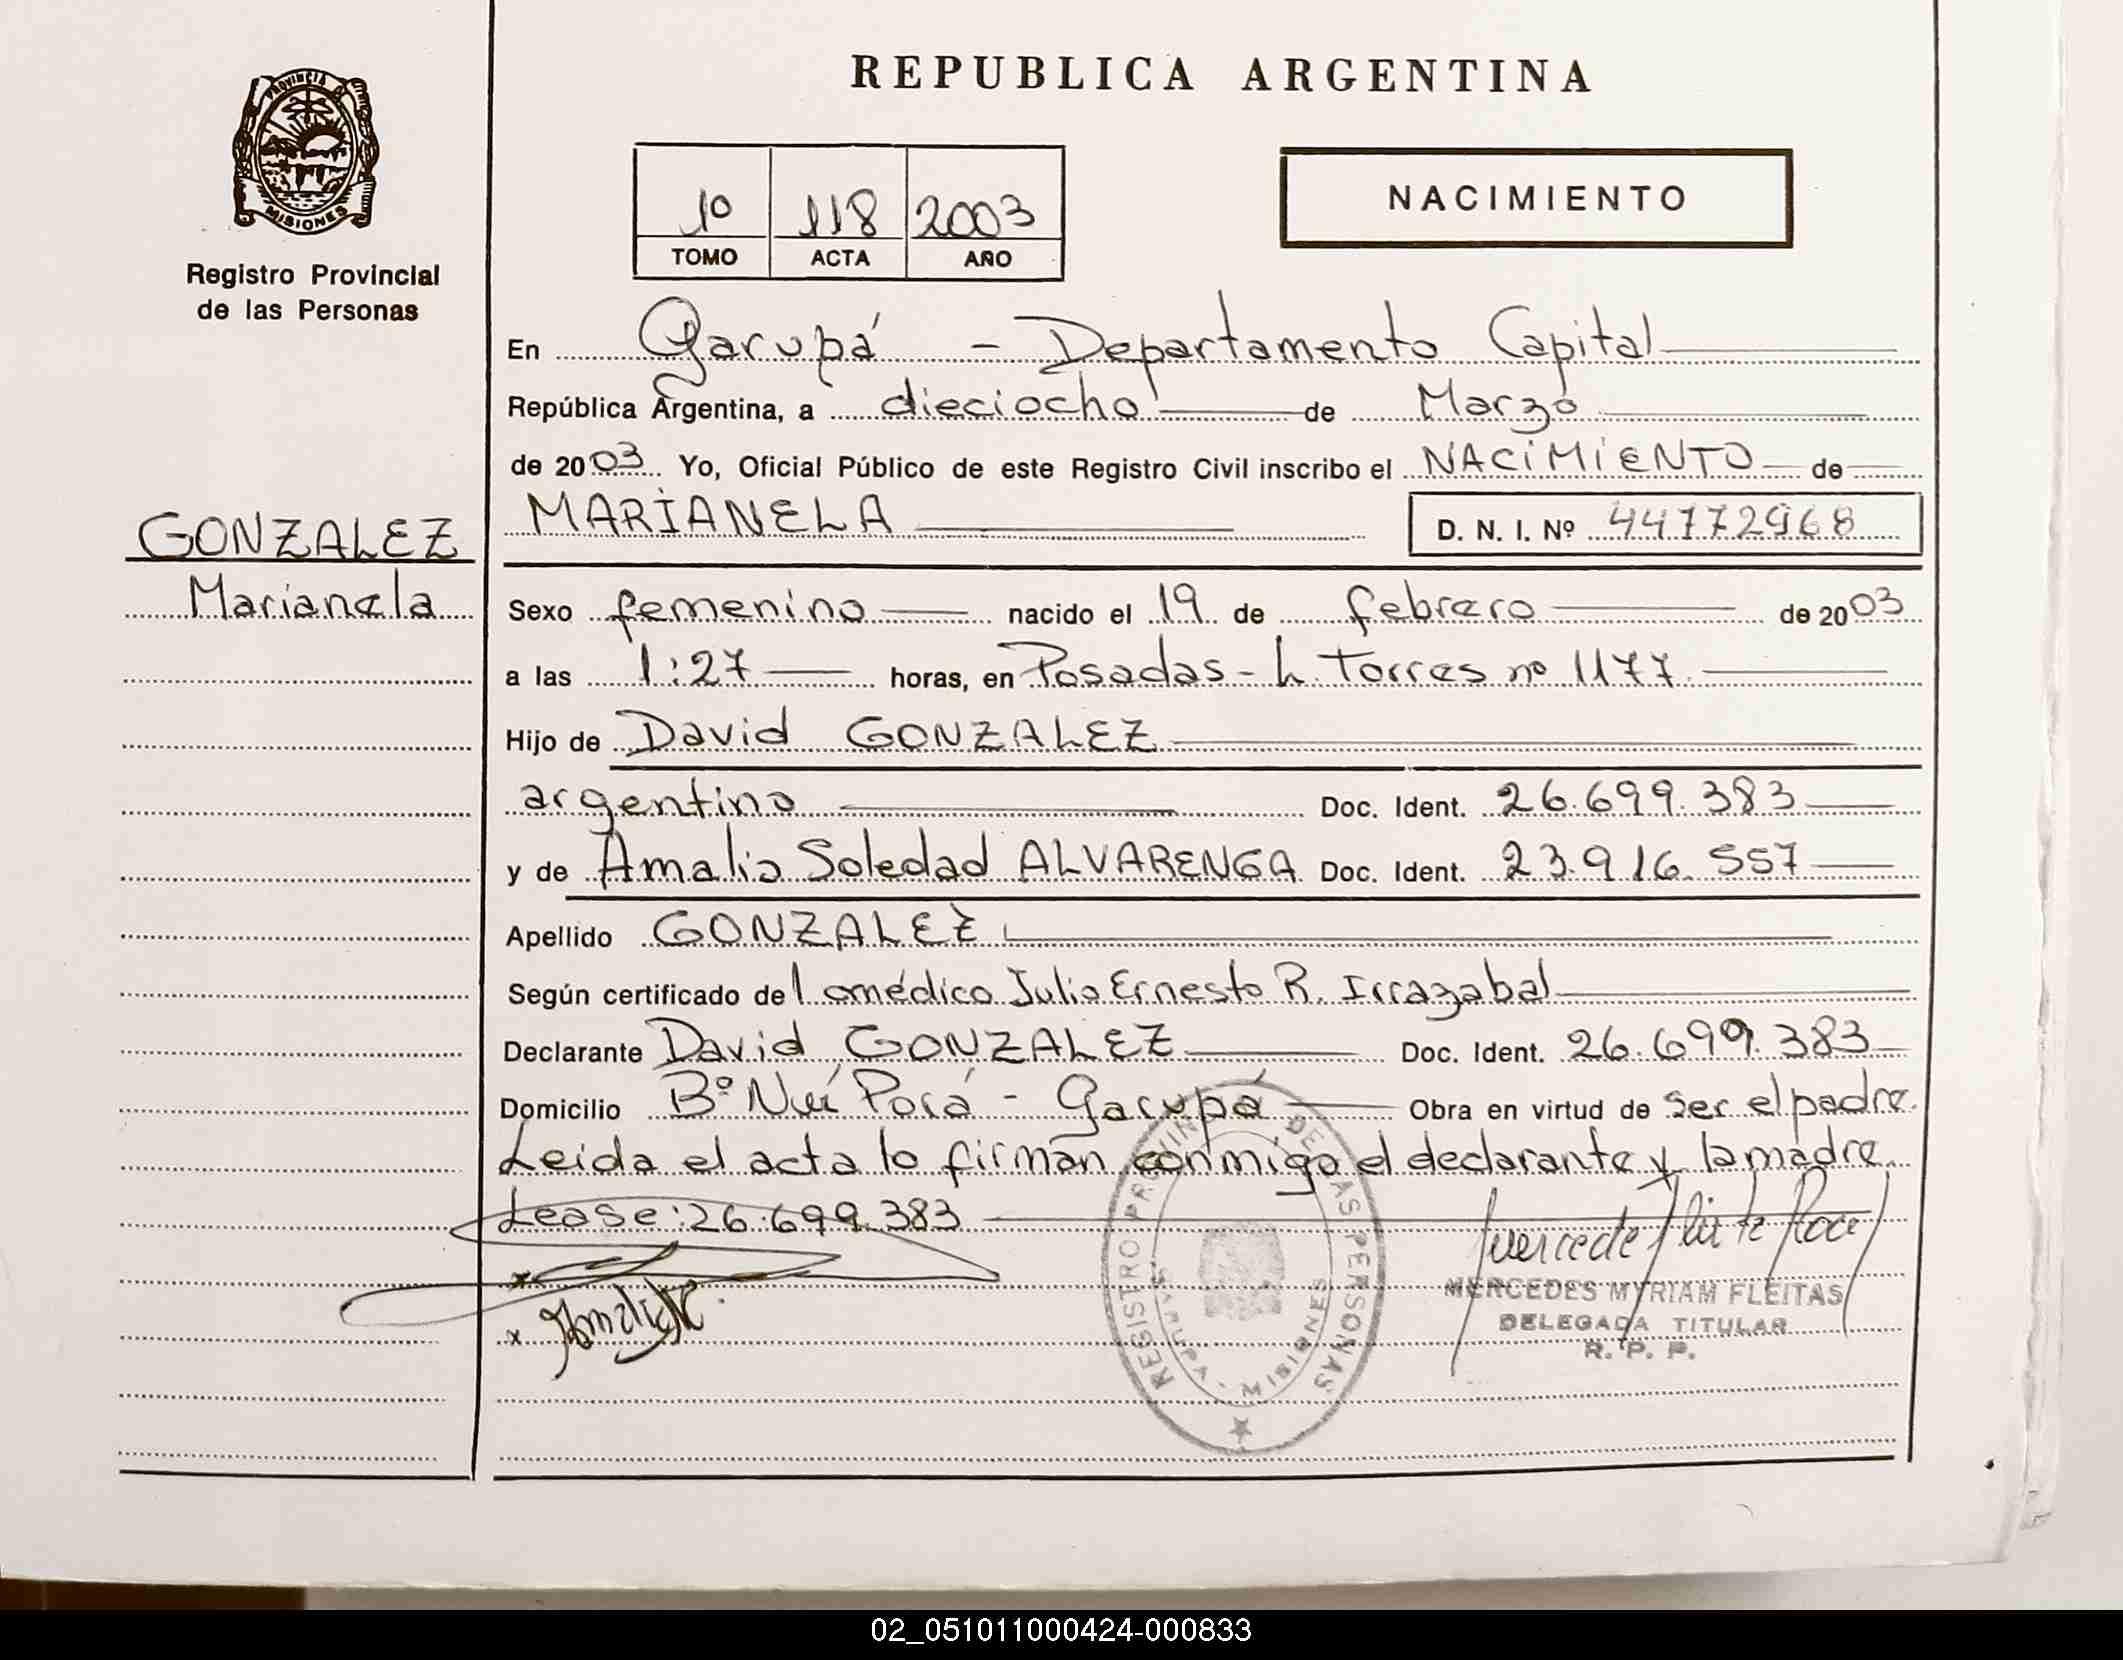 REPUBLICA ARGENTINA
PROVINCIA DE
MISIONES
Registro Provincial
de las Personas
1º 118 2003
TOMO ACTA AÑO
NACIMIENTO
En Garupá - Departamento Capital
República Argentina, a dieciocho de Marzo
de 2003 Yo, Oficial Público de este Registro Civil inscribo el NACIMIENTO de
MARIANELA D. N. I. Nº 44772968
GONZALEZ
Marianela
Sexo femenino nacido el 19 de febrero de 2003
a las 1:27 horas, en Posadas - L. Torres nº 1177
Hijo de David GONZALEZ
argentino Doc. Ident. 26.699.383
y de Amalia Soledad ALVARENGA Doc. Ident. 23.916.557
Apellido GONZALEZ
Según certificado del médico Julio Ernesto R. Irrazabal
Declarante David GONZALEZ Doc. Ident. 26.699.383
Domicilio Bº Ñu Porá - Garupá Obra en virtud de ser el padre.
Leida el acta lo firman conmigo el declarante y la madre
Lease: 26.699.383
x
x
REGISTRO PROVIN DE LAS PERSONAS
GARUPA - MISIONES
MERCEDES MYRIAM FLEITAS
DELEGADA TITULAR
R. P. P.
02_051011000424-000833